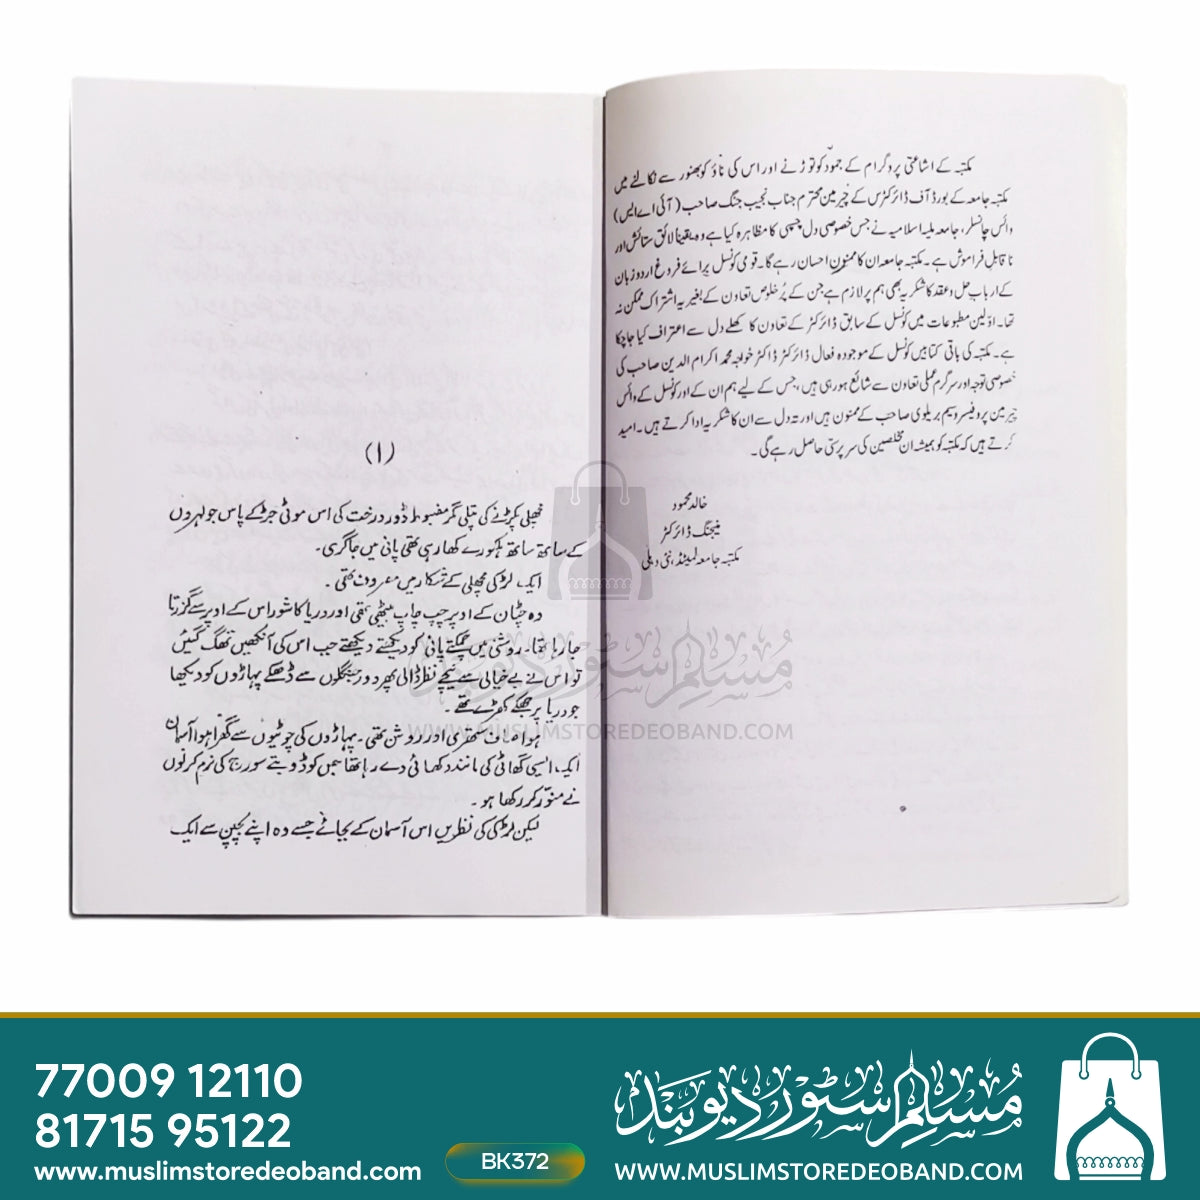 مکتبہ کے اشاعتی پروگرام کے جمود کو توڑنے اور اس کی ناؤ کو بھنور سے نکالنے میں
مکتبہ جامعہ کے بورڈ آف ڈائرکٹرس کے چیرمین محترم جناب نجیب جنگ صاحب (آئی اے ایس)
وائس چانسلر، جامعہ ملیہ اسلامیہ نے جس خصوصی دل چسپی کا مظاہرہ کیا ہے وہ یقیناً لائق ستائش اور
ناقابل فراموش ہے۔ مکتبہ جامعہ ان کا ممنون احسان رہے گا۔ قومی کونسل برائے فروغ اردو زبان
کے ارباب حل و عقد کا شکریہ بھی ہم پر لازم ہے جن کے پُرخلوص تعاون کے بغیر یہ اشتراک ممکن نہ
تھا۔ اوّلین مطبوعات میں کونسل کے سابق ڈائرکٹر کے تعاون کا کھلے دل سے اعتراف کیا جا چکا
ہے۔ مکتبہ کی باقی کتابیں کونسل کے موجودہ فعال ڈائرکٹر ڈاکٹر خواجہ محمد اکرام الدین صاحب کی
خصوصی توجہ اور سرگرم عملی تعاون سے شائع ہو رہی ہیں، جس کے لیے ہم ان کے اور کونسل کے وائس
چیرمین پروفیسر وسیم بریلوی صاحب کے ممنون ہیں اور تہ دل سے ان کا شکریہ ادا کرتے ہیں۔ امید
کرتے ہیں کہ مکتبہ کو ہمیشہ ان مخلصین کی سرپرستی حاصل رہے گی۔
خالد محمود
منیجنگ ڈائرکٹر
مکتبہ جامعہ لمیٹڈ، نئی دہلی
(۱)
مچھلی پکڑنے کی پتلی مگر مضبوط ڈور درخت کی اس موٹی جڑ کے پاس جو لہروں
کے ساتھ ساتھ ہلکورے کھا رہی تھی پانی میں جا گری۔
ایک لڑکی مچھلی کے شکار میں مصروف تھی۔
وہ چٹان کے اوپر چپ چاپ بیٹھی تھی اور دریا کا شور اس کے اوپر سے گزرتا
جا رہا تھا۔ روشنی میں چمکتے پانی کو دیکھتے دیکھتے جب اس کی آنکھیں تھک گئیں
تو اس نے بے خیالی سے نیچے نظر ڈالی پھر دور جنگلوں سے ڈھکے پہاڑوں کو دیکھا
جو دریا پر جھکے کھڑے تھے۔
ہوا صاف ستھری اور روشن تھی۔ پہاڑوں کی چوٹیوں سے گھرا ہوا آسمان
ایک ایسی گھاٹی کی مانند دکھائی دے رہا تھا جس کو ڈوبتے سورج کی نرم کرنوں
نے منوّر کر رکھا ہو۔
لیکن لڑکی کی نظریں اس آسمان کے بجائے جسے وہ اپنے بچپن سے ایک
مسلم سٹور دیوبند
WWW.MUSLIMSTOREDEOBAND.COM
77009 12110
81715 95122
www.muslimstoredeoband.com
BK372
مسلم سٹور دیوبند
WWW.MUSLIMSTOREDEOBAND.COM